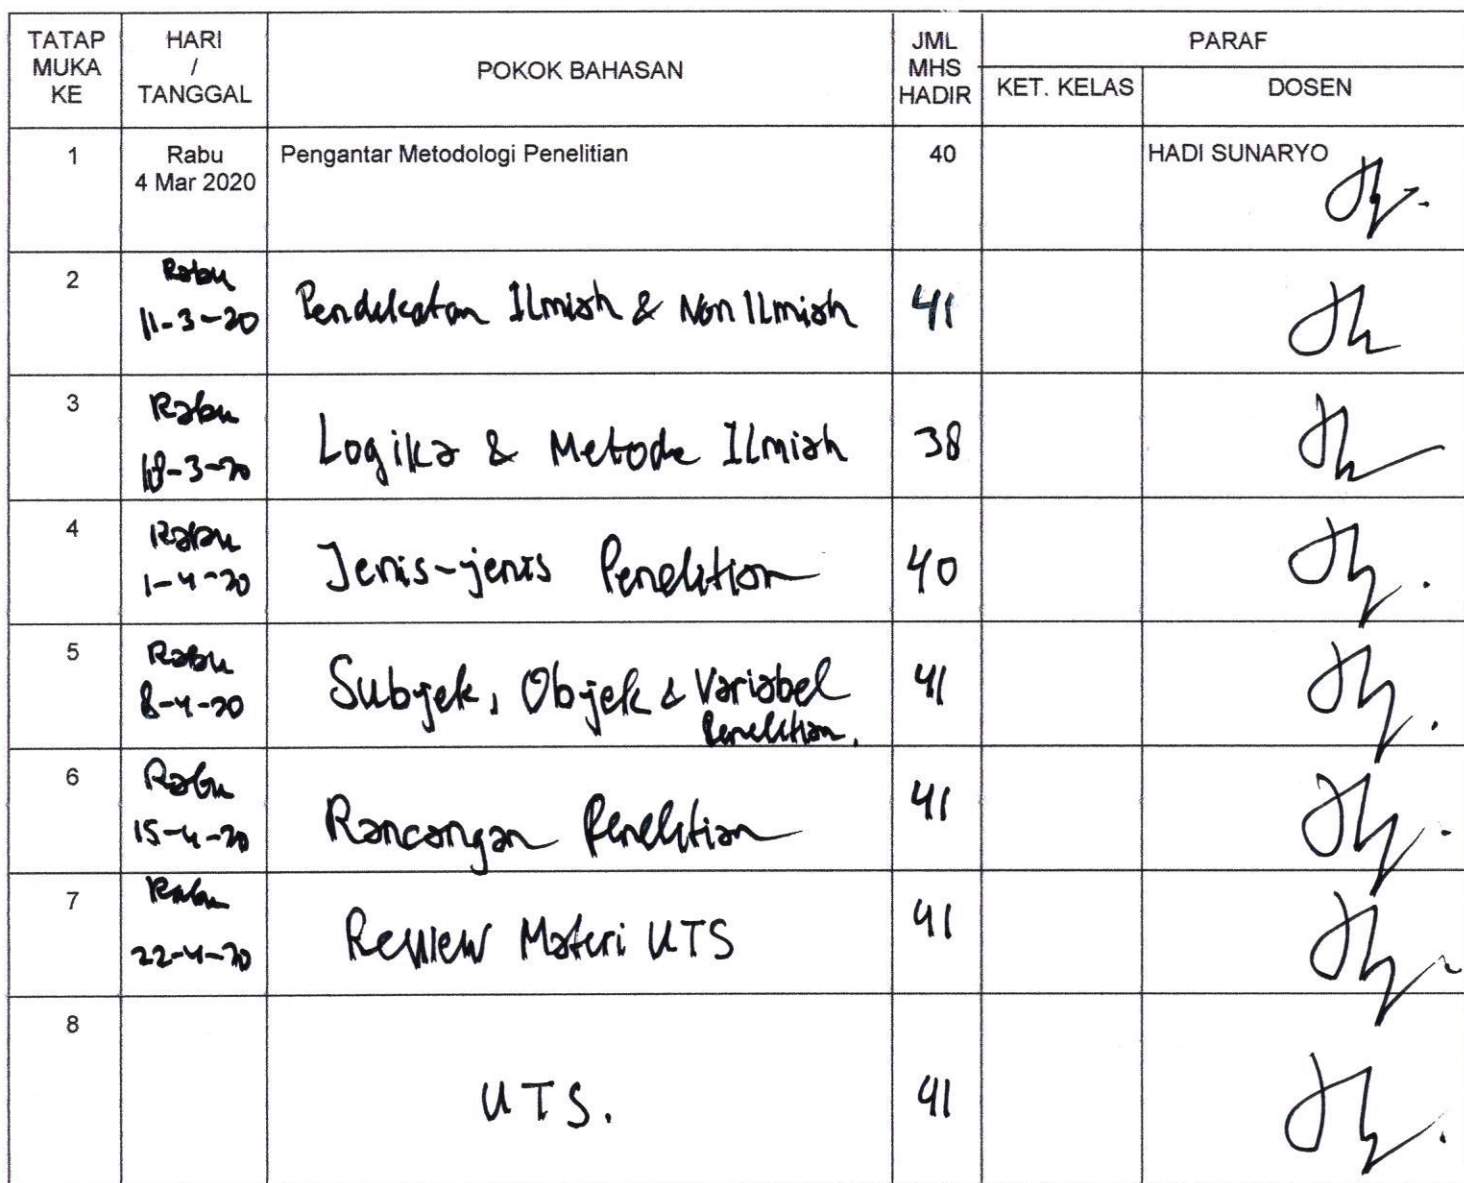 TATAP MUKA KE HARI / TANGGAL POKOK BAHASAN JML MHS HADIR PARAF
KET. KELAS DOSEN
1 Rabu 4 Mar 2020 Pengantar Metodologi Penelitian 40 HADI SUNARYO
2 Rabu 11-3-20 Pendekatan Ilmiah & Non Ilmiah 41
3 Rabu 18-3-20 Logika & Metode Ilmiah 38
4 Rabu 1-4-20 Jenis-jenis Penelitian 40
5 Rabu 8-4-20 Subjek, Objek & Variabel Penelitian. 41
6 Rabu 15-4-20 Rancangan Penelitian 41
7 Rabu 22-4-20 Review Materi UTS 41
8 UTS. 41